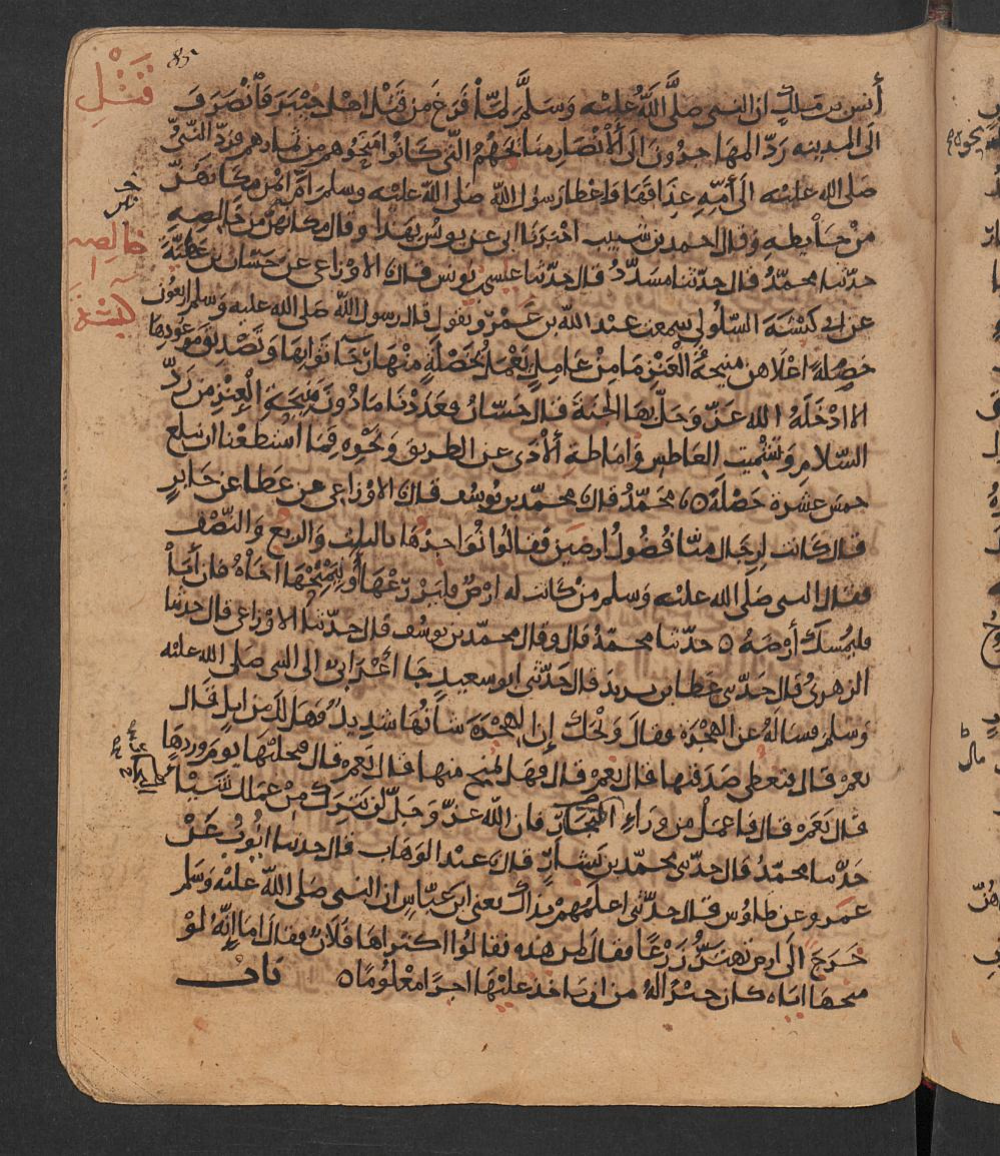 85
قتل
أنس بن ملك ان النبى صلَّى اللَّه عليْه وَسَلَّمَ لمّا فَرَغَ من قَتْل اهْل خيْبَرَ فَانْصَرَفَ
الى المدينه رَدّ المهَاجِرُونَ الَى الْأَنْصَارِ مَنَائحَهُمُ الَّتى كَانُوا مَنَحُوهم من ثمارهم فردّ النَّبىُّ
صَلى الله عليْه الَى أُمّهِ عِذَاقَهَا فاعْطا رَسُولُ اللَّه صَلى اللّه عليْه وسلم امّ ايْمن مكانهنّ
منْ حَائِطِهِ وَقال احمد بن شبيب اخْبَرَنَا ابى عن يونسَ بهَذا وقال مكانهنّ منْ خَالِصِهِ
حدّثنا محمّدٌ قال حدّثنا مسَدَّدٌ قال حدّثنا عيسى بن يونس قال نا الاوْزاعى عن حَسّان بن عَطِيَّةَ
عن ابى كبْشَةَ السّلُولى سمعت عبْد اللّه بن عَمْرٍو يَقول قال رسول اللَّه صَلى الله عليه وَسلم اربعُونَ
خصلةً اعْلاهن منيحَةُ الْعَنْزِ مَا منْ عَامِلٍ يَعْمَلُ بخَصْلَةٍ منْهَا رَجَا ثَوَابِهَا وَتَصْديقَ مَوْعُودِهَا
الا ادْخَلَهُ الله عَزّ وَجَلّ بهَا الجنةَ قال حَسّانُ فعَدَدْنَا مَا دُونَ مَنِيحَةِ الْعنْزِ من رَدّ
السّلامِ وَتَشْميت العَاطِس وَامَاطة الْأذَى عن الطريق وَنَحْوِهِ فَمَا اسْتطعْنا ان نبلغ
خمسَ عشرة خَصْلَةً ٥ نا محَمّدٌ قال نا محمّد بن يُوسُف قال نا الاوْزاعى عن عَطَا عن جَابِرٍ
قال كَانت لِرِجَال منّا فُضُولُ ارضينَ فقالُوا نُوَاجِرُهَا بالثلث وَالربع وَالنّصْف
فقال النبى صَلَى الله عليْه وَسلم منْ كَانت له ارْضٌ فلْيَزْرَعْهَا أوْ لِيَمْنَحْهَا اخَاهُ فان أبَا
فليُمْسك أرْضَهُ ٥ حدّثنا محَمّدٌ قال وقال محمّد بن يُوسُف قال حدّثنا الاوْزاعى قال حدثنا
الزهرىُّ قال حَدّثنى عَطا ابن يزيدَ قال حَدّثنى ابو سعيدٍ جَا أعْرَابى الى النبى صَلى الله عليْه
وَسلم فسَالَهُ عن الهجْرَه فقالَ وَيْحَك إنّ الهجْرَةَ شَأنُهَا شدِيدٌ فهَل لك من ابلٍ قال
نعمْ قال فتعطى صَدَقتها قال نعمْ قال فهَل تمنح منهَا قال نَعَمْ قال فتحلبُهَا يوم وِرودِهَا
قال نَعَمْ قال فاعْمَلْ من وَرَاءِ البحَارِ فان اللّه عزّ وَجلّ لنْ يَتِرَكَ منْ عمَلك شَيْئًا
حَدّثنا محَمّدٌ قال حدّثنى محَمّد بن بَشّارٍ قال نا عبْد الوَهاب قال حدثنا ايُّوبُ عَنْ
عمَرو عن طَاوُس قال حدّثنى اعلَمُهمْ بذاك يعْنى ابن عَبّاسٍ ان النبى صَلى اللَّه عليْه وَسَلم
خَرَجَ الَى ارضٍ تَهتَزُّ زَرْعًا فقال لمن هذه فقالُوا اكتراهَا فُلَانٌ فقال امَا إنّهُ لَوْ
منحهَا ايّاه كان خيْرًا لهُ من ان يَاخذ عليْهَا اجرًا معْلُومًا ٥
بَاب
خيبر
خالصه
كبشة